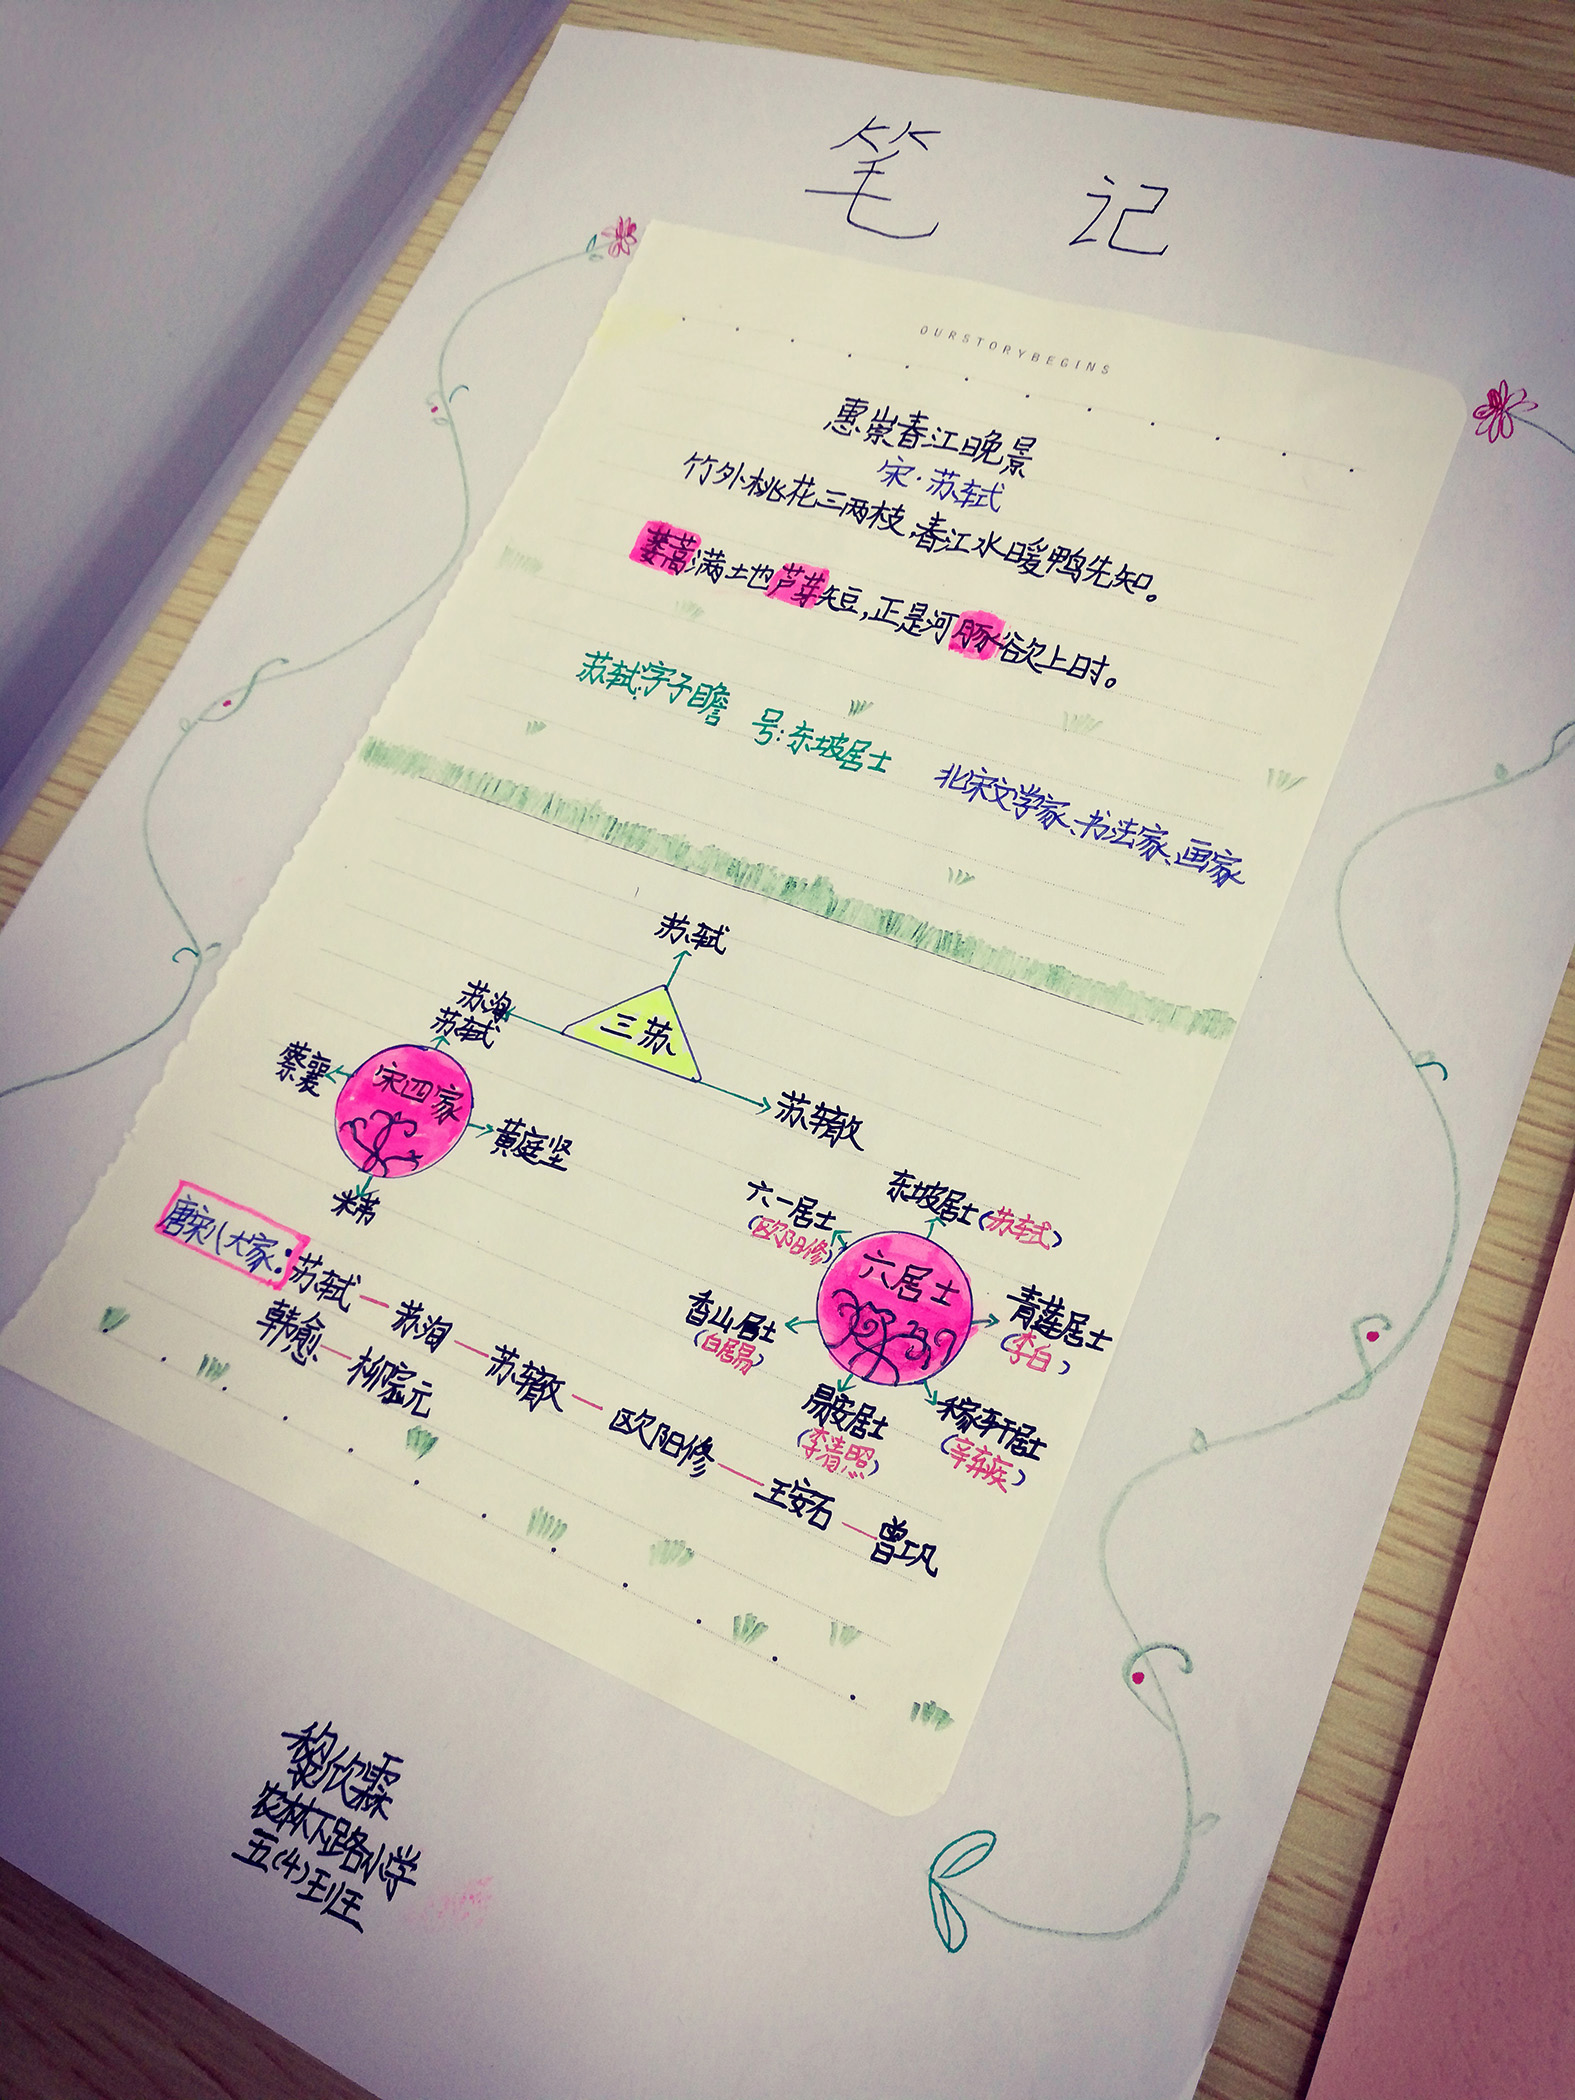 笔 记
OURSTORYBEGINS
惠崇春江晚景
宋·苏轼
竹外桃花三两枝,春江水暖鸭先知。
蒌蒿满地芦芽短,正是河豚欲上时。
苏轼:字子瞻 号:东坡居士 北宋文学家、书法家、画家
苏轼
苏洵
三苏
苏辙
苏轼
蔡襄
宋四家
黄庭坚
米芾
六一居士
(欧阳修)
东坡居士(苏轼)
六居士
香山居士
(白居易)
青莲居士
(李白)
易安居士
(李清照)
稼轩居士
(辛弃疾)
唐宋八大家:苏轼—苏洵—苏辙—欧阳修—王安石—曾巩
韩愈—柳宗元
黎欣霖
农林下路小学
五(4)班